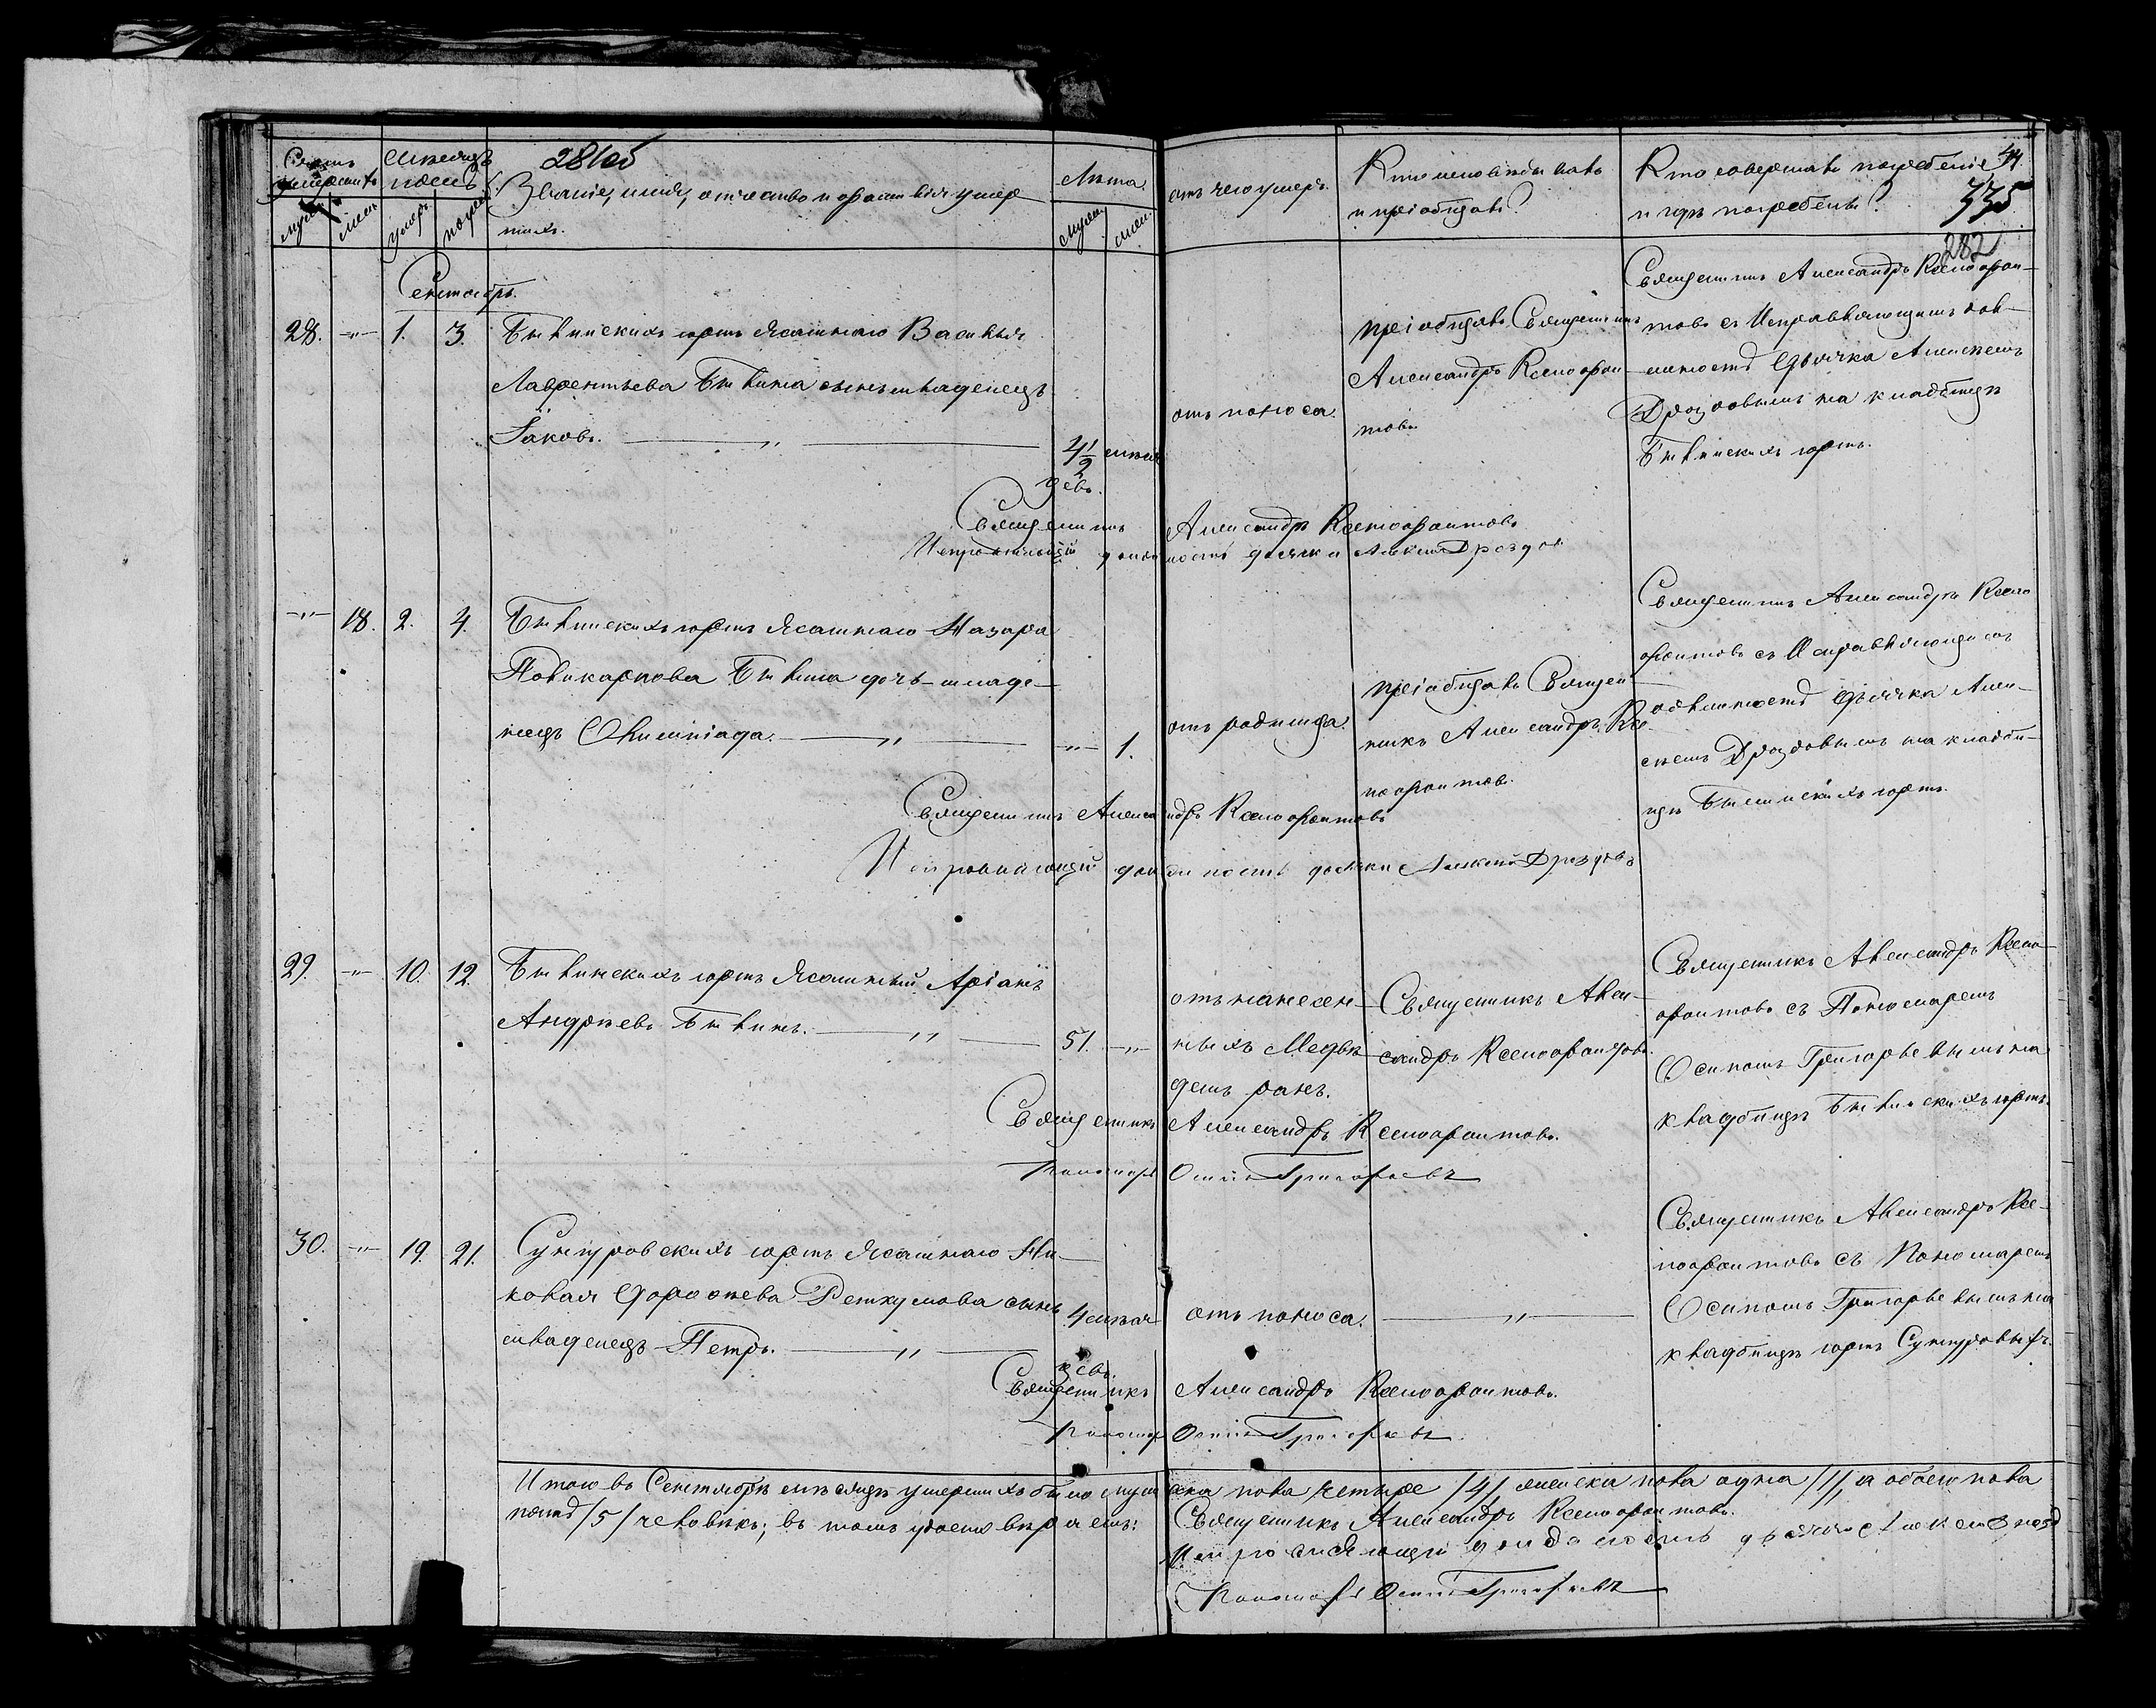 281об
Счетъ умершихъ
Мѣсяцъ и день
Званіе, имя, отчество и фамилія умер-
шихъ.
Лѣта
отъ чего умеръ.
Кто исповѣдывалъ
и пріобщалъ?
Кто совершалъ погребеніе
и гдѣ погребены?
335
282
муж.
жен.
умер.
погреб.
муж.
жен.
Сентябрь.
28. -„- 1. 3. юртъ Ясашнаго Василья
Лаврентьева сынъ младенецъ
Іаковъ. —„—
4 1/2 мѣся
цевъ.
отъ поноса.
пріобщалъ Священникъ
Александръ Ксенофон-
товъ
Священникъ Александръ Ксенофон-
товъ съ Исправляющимъ дол-
жность дьячка Алексѣемъ
Дроздовымъ на кладбищѣ
юртъ.
Священникъ Александръ Ксенофонтовъ
Исправляющій должность дьячка Алексей Дроздов
-„- 18. 2. 4. юртъ Ясашнаго Назара
Поликарпова дочь младе-
нецъ Олимпіада. —„— -„- 1.
отъ родимца.
пріобщалъ Священ-
никъ Александръ Ксе-
нофонтовъ.
Священникъ Александръ Ксено
фонтовъ съ Исправляющимъ
должность дьячка Алек-
сѣемъ Дроздовымъ на кладби-
щѣ юртъ.
Священникъ Александръ Ксенофонтовъ
Исправляющій должность дьячка Алексей Дроздовъ
29. -„- 10. 12. юртъ Ясашный
Андрѣевъ —„— 51. -„-
отъ нанесен-
ныхъ Медвѣ-
демъ ранъ.
Священникъ Алек-
сандръ Ксенофонтовъ.
Священникъ Александръ Ксено-
фонтовъ съ Пономаремъ
Осипомъ Григорьевымъ на
кладбищѣ юртъ.
Священникъ Александръ Ксенофонтовъ.
Пономарь Осипъ Григорьевъ
30. -„- 19. 21. юртъ Ясашнаго Ни-
колая Дорофѣева сынъ
младенецъ Петръ. —„—
4 мѣся
цевъ.
отъ поноса. —„—
Священникъ Александръ Ксе-
нофонтовъ съ Пономаремъ
Осипомъ Григорьевымъ на
кладбищѣ юртъ
Священникъ Александръ Ксенофонтовъ.
Пономарь Осипъ Григорьевъ
Итого въ Сентябрѣ мѣсяцѣ умершихъ было мужеска пола четыре /4/ женска пола одна /1/, а обоего пола
пять /5/ человѣкъ; въ томъ удостовѣряемъ: Священникъ Александръ Ксенофонтовъ.
Исправляющій должность дьячка
Пономарь Осипъ Григорьевъ